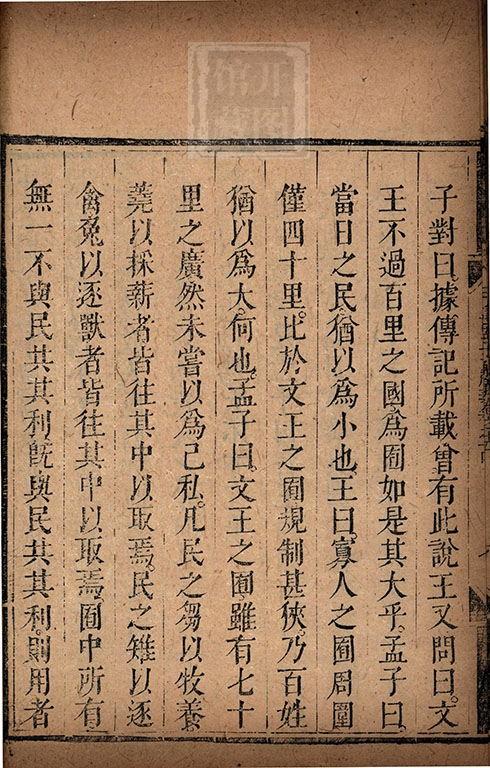 子對曰據傳記所載曾有此說王又問曰文
王不過百里之國為囿如是其大乎孟子曰
當日之民猶以為小也王曰寡人之囿周圍
僅四十里比於文王之囿規制甚狹乃百姓
猶以為大何也孟子曰文王之囿雖有七十
里之廣然未嘗以為己私凡民之芻以牧養
蕘以採薪者皆往其中以取焉民之雉以逐
禽兔以逐獸者皆往其中以取焉囿中所有
無一不與民共其利旣與民共其利則用者